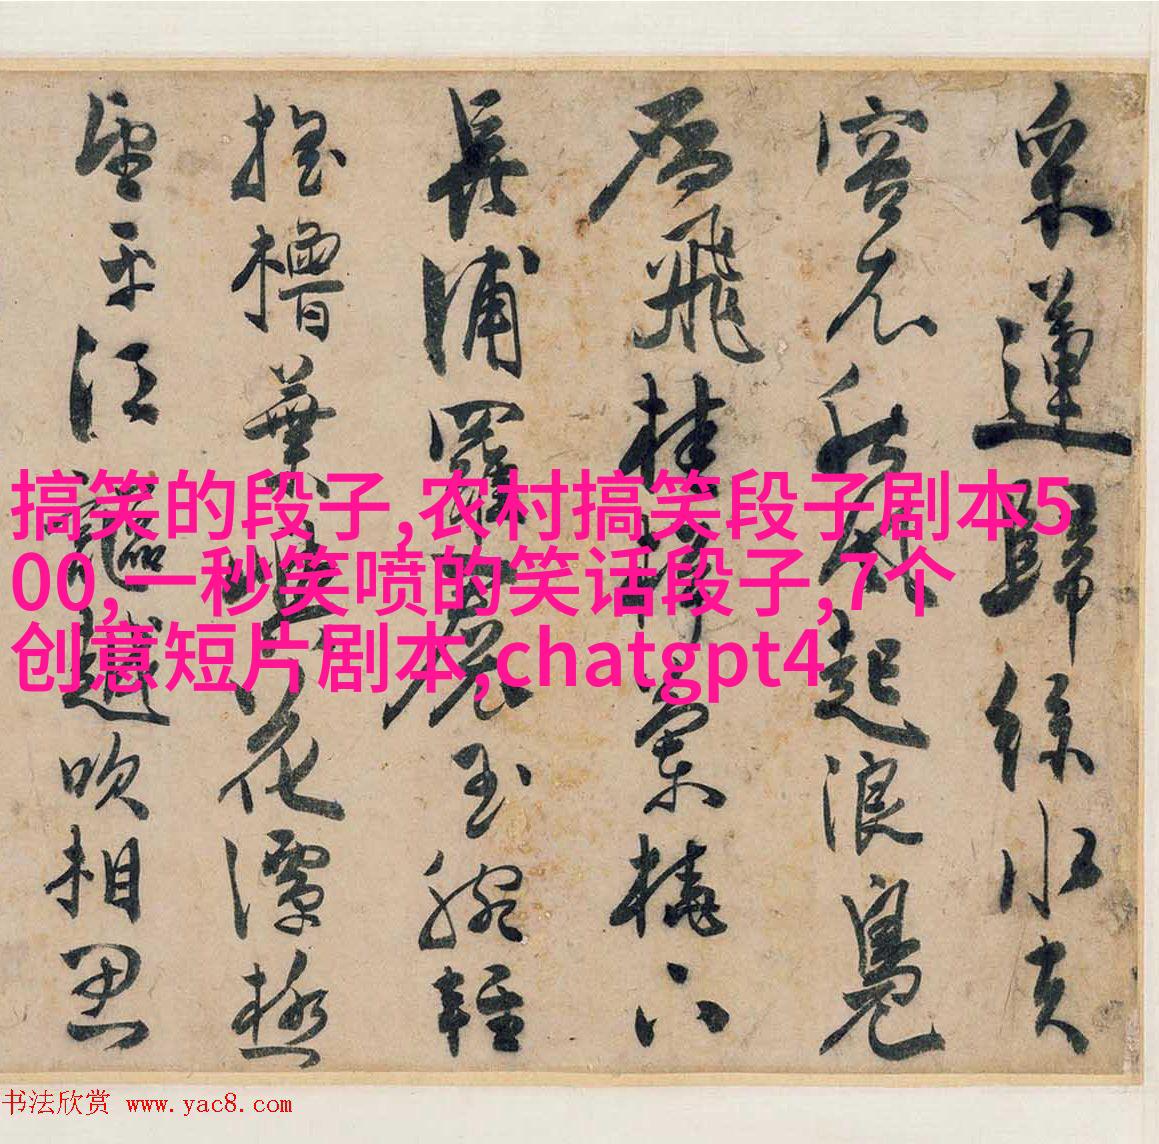 采蓮歸綠水芙
容衣秋風起浪鳧
鴈飛桂棹蘭橈下
長浦羅裙玉腕輕
搖櫓葉嶼花潭極
望平江謳越吹相思
搞笑的段子,农村搞笑段子剧本5
00,一秒笑喷的笑话段子,7个
创意短片剧本,chatgpt4
书法欣赏 www.yac8.com